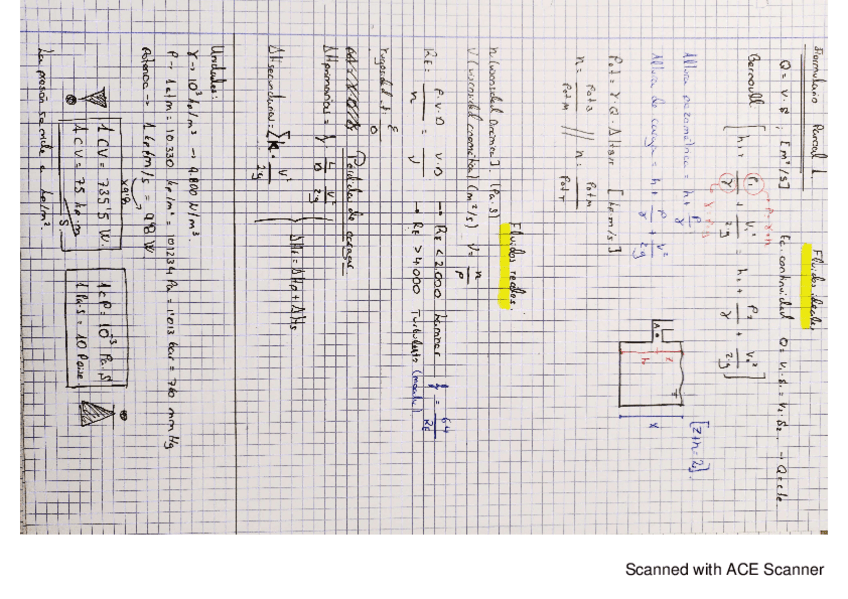 Formulario Parcial 1.
Fluidos ideales
Q = V · S ; [m³/s] Ec. continuidad Q = V₁ · S₁ = V₂ · S₂ ... → Q = cte
Bernoulli [ h₁ + P₁/γ + V₁²/2g = h₂ + P₂/γ + V₂²/2g ]
Altura piezométrica = h + P/γ
[z + h = z].
Altura de carga = h + P/γ + V²/2g
x
Pot = γ · Q · ΔH
Fluidos reales:
n (viscosidad dinámica) [Pa · s]
V (viscosidad cinemática) (m²/s) V = n/ρ
RE = ρ · V · D / n = V · D / V → RE < 2.000 laminar f = 64/RE
→ RE > 4.000 Turbulento
rugosidad r. ε/D
Pérdida de cargas
ΔH primarias = f · L/D · V²/2g
ΔH secundarias = Σ K · V²/2g
ΔHt = ΔHp + ΔHs
Unidades:
γ → 10³ kp/m³ → 9.800 N/m³.
P → 1 atm = 10.330 kp/m² = 101234 Pa = 1'013 bar = 760 mmHg
Potencia → 1 kp·m/s = 9'8 W
x9'8
1 CV = 735'5 W.
1 CV = 75 kp·m/s
1 cP = 10⁻³ Pa · s
1 Pa·s = 10 Poise
La presión se mide en kp/m².
Scanned with ACE Scanner